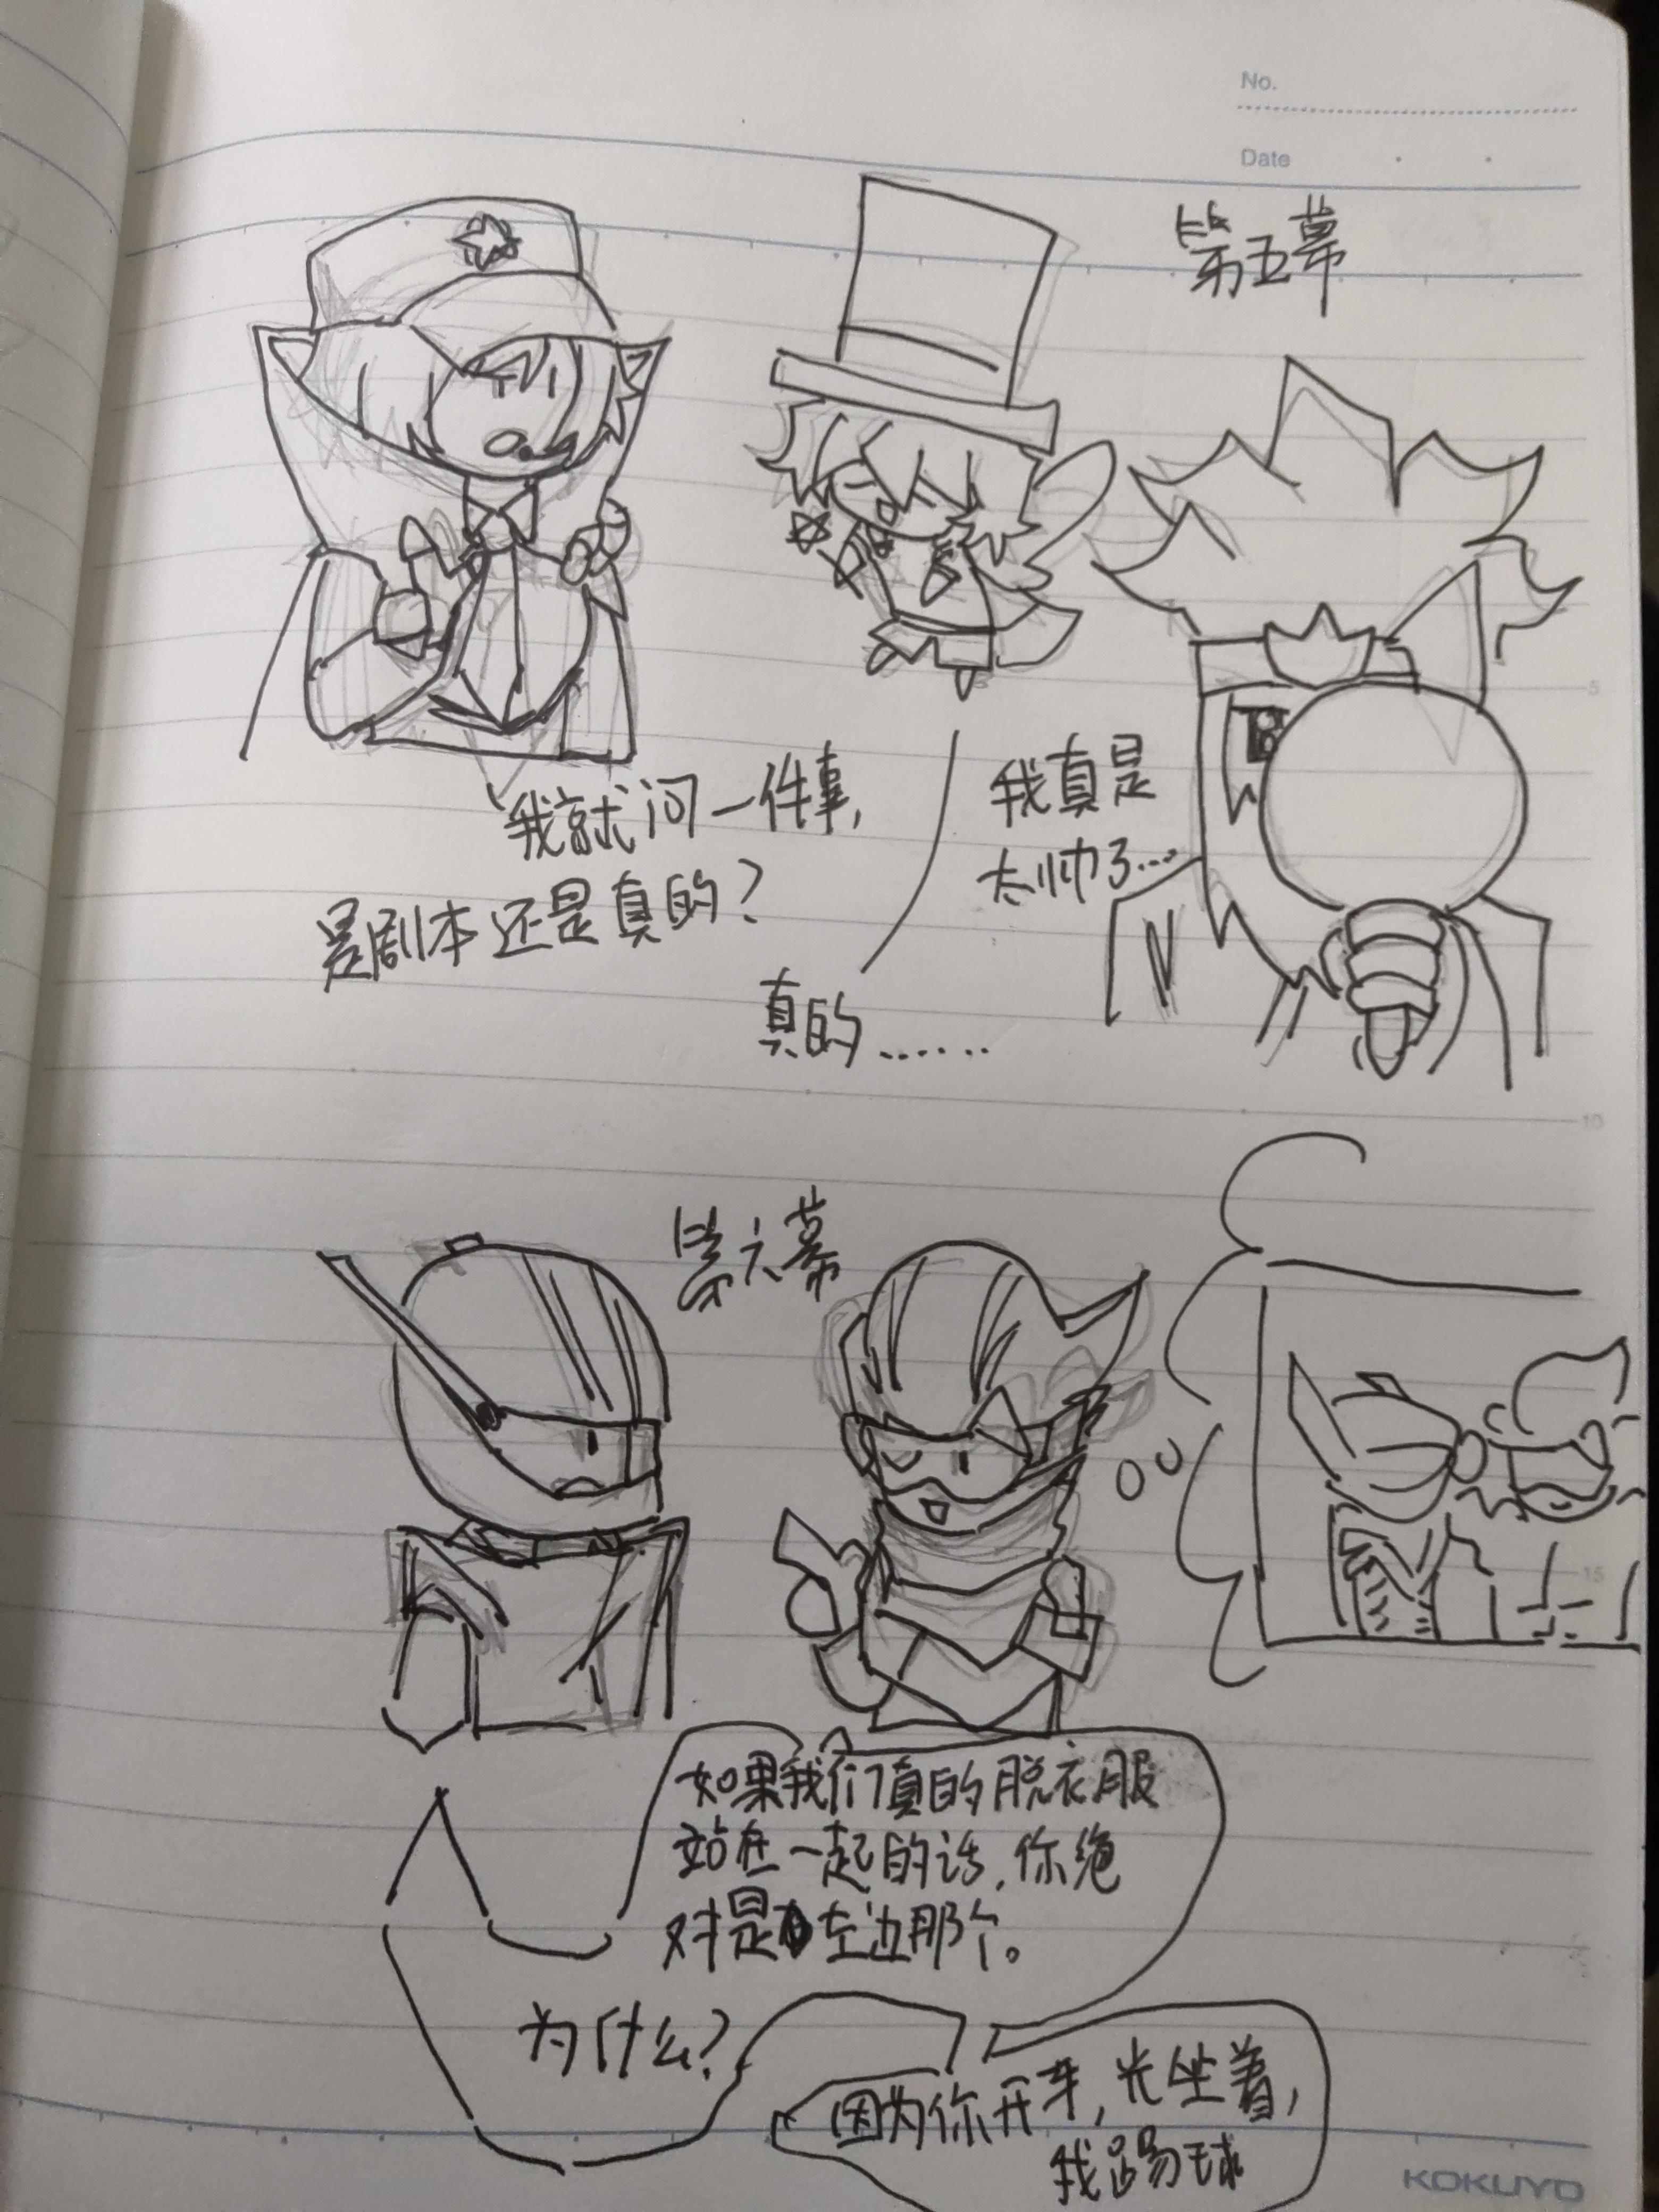 No.
Date
第五幕
我就问一件事,
是剧本还是真的?
真的……
我真是
太帅了…
5
10
第六幕
15
如果我们真的脱衣服
站在一起的话,你绝
对是左边那个。
为什么?
因为你开车,光坐着,
我踢球
KOKUYO